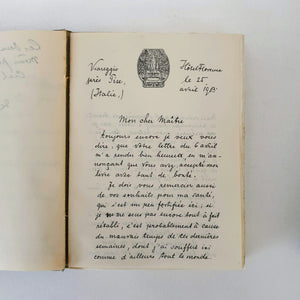 Viareggio
près Pise,
(Italie,)
Hôtel Florence
le 25
avril 1903
Mon cher Maître
Toujours encore je veux vous
dire, que votre lettre du 6 avril
m'a rendu bien heureux, en m'an-
nonçant que vous avez accepté mon
livre avec tant de bonté.
Je dois vous remercier aussi
de vos souhaits pour ma santé,
qui s'est un peu fortifiée ici; si
je ne me sens pas encore tout à fait
rétabli, c'est probablement à cause
du mauvais temps de ces dernières
semaines, dont j'ai souffert ici
comme d'ailleurs tout le monde.